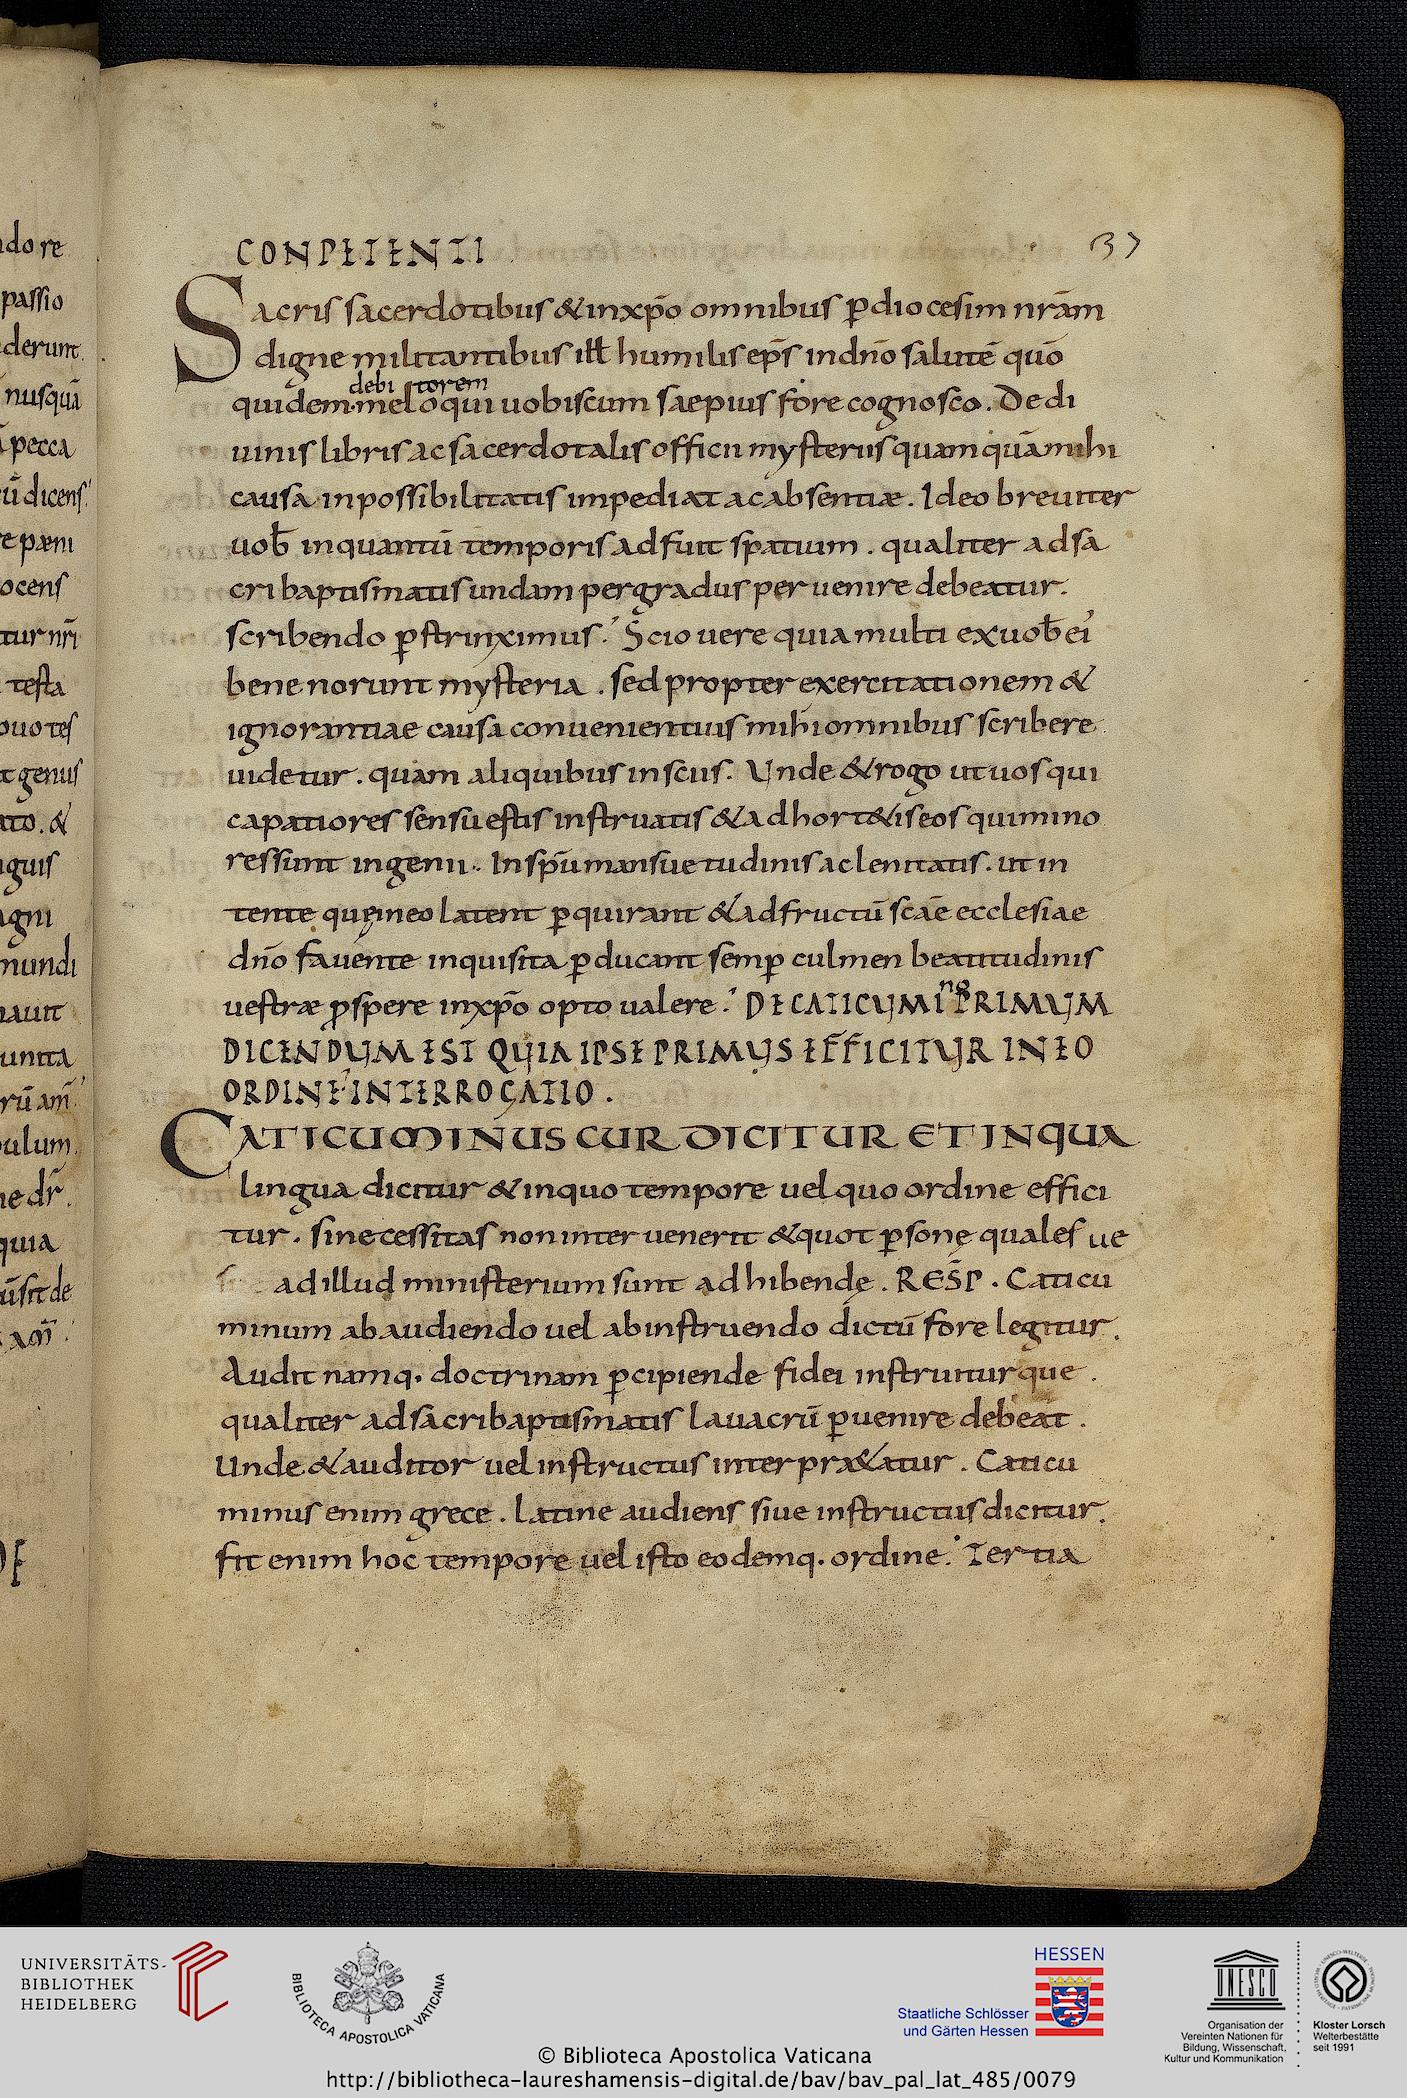 CONPETENTI
37
Sacris sacerdotibus & in xp̄o omnibus p̱ diocesim nr̄am
digne militantibus ilł humilis ep̄s in dn̄o salutē quō
debitorem
quidem me loqui uobiscum saepius fore cognosco. De di
uinis libris ac sacerdotalis officii mysteriis quamquā mihi
causa inpossibilitatis impediat ac absentiæ. Ideo breuiter
uob̄ inquantū temporis adfuit spatium. qualiter ad sa
cri baptismatis undam per gradus peruenire debeatur.
scribendo p̱strinximus. Scio uere quia multi ex uob̄ ei
bene norunt mysteria. sed propter exercitationem &
ignorantiae causa conuenientius mihi omnibus scribere
uidetur. quam aliquibus insciis. Unde & rogo ut uos qui
capatiores sensu estis instruatis & adhort&is eos qui mino
res sunt ingenii. In sp̄u mansuetudinis ac lenitatis. ut in
tente quę in eo latent p̱quirant & ad fructū scāe ecclesiae
dn̄o fauente inquisita p̱ducant semp̱ culmen beatitudinis
uestræ ꝓspere in xp̄o opto ualere. DE CATICUMINO PRIMUM
DICENDUM EST QUIA IPSE PRIMUS EFFICITUR IN EO
ORDINE INTERROGATIO.
CATICUMINUS CUR DICITUR ET IN QUA
lingua dicitur & in quo tempore uel quo ordine effici
tur. si necessitas non interuenerit & quot p̱sonę quales ue
ad illud ministerium sunt adhibendę. RESP̄. Caticu
minum ab audiendo uel ab instruendo dictū fore legitur.
Audit namq. doctrinam p̱cipiende fidei instruiturque.
qualiter ad sacri baptismatis lauacrū p̱uenire debeat.
Unde & auditor uel instructus interpr&atur. Caticu
minus enim grece. Latine audiens siue instructus dicitur.
fit enim hoc tempore uel isto eodemq. ordine. Tertia
UNIVERSITÄTS-
BIBLIOTHEK
HEIDELBERG
BIBLIOTECA APOSTOLICA VATICANA
HESSEN
Staatliche Schlösser
und Gärten Hessen
UNESCO
Organisation der
Vereinten Nationen für
Bildung, Wissenschaft,
Kultur und Kommunikation
Kloster Lorsch
Welterbestätte
seit 1991
© Biblioteca Apostolica Vaticana
http://bibliotheca-laureshamensis-digital.de/bav/bav_pal_lat_485/0079